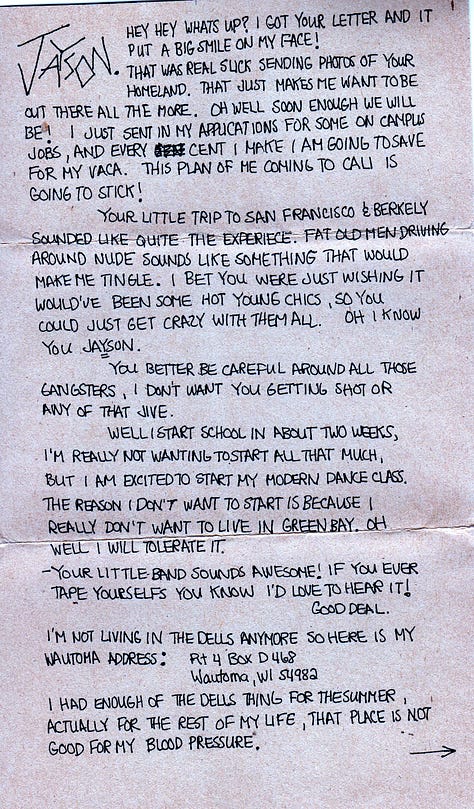 JAYSON.
HEY HEY WHATS UP? I GOT YOUR LETTER AND IT
PUT A BIG SMILE ON MY FACE!
THAT WAS REAL SLICK SENDING PHOTOS OF YOUR
HOMELAND. THAT JUST MAKES ME WANT TO BE
OUT THERE ALL THE MORE. OH WELL SOON ENOUGH WE WILL
BE! I JUST SENT IN MY APPLICATIONS FOR SOME ON CAMPUS
JOBS, AND EVERY CENT I MAKE I AM GOING TO SAVE
FOR MY VACA. THIS PLAN OF ME COMING TO CALI IS
GOING TO STICK!
YOUR LITTLE TRIP TO SAN FRANCISCO & BERKELY
SOUNDED LIKE QUITE THE EXPERIECE. FAT OLD MEN DRIVING
AROUND NUDE SOUNDS LIKE SOMETHING THAT WOULD
MAKE ME TINGLE. I BET YOU WERE JUST WISHING IT
WOULD'VE BEEN SOME HOT YOUNG CHICS, SO YOU
COULD JUST GET CRAZY WITH THEM ALL. OH I KNOW
YOU JAYSON.
YOU BETTER BE CAREFUL AROUND ALL THOSE
GANGSTERS, I DON'T WANT YOU GETTING SHOT OR
ANY OF THAT JIVE.
WELL I START SCHOOL IN ABOUT TWO WEEKS,
I'M REALLY NOT WANTING TO START ALL THAT MUCH,
BUT I AM EXCITED TO START MY MODERN DANCE CLASS.
THE REASON I DON'T WANT TO START IS BECAUSE I
REALLY DON'T WANT TO LIVE IN GREEN BAY. OH
WELL I WILL TOLERATE IT.
-YOUR LITTLE BAND SOUNDS AWESOME! IF YOU EVER
TAPE YOURSELFS YOU KNOW I'D LOVE TO HEAR IT!
GOOD DEAL.
I'M NOT LIVING IN THE DELLS ANYMORE SO HERE IS MY
WAUTOMA ADDRESS: Rt 4 Box D468
Wautoma, WI 54982
I HAD ENOUGH OF THE DELLS THING FOR THE SUMMER,
ACTUALLY FOR THE REST OF MY LIFE, THAT PLACE IS NOT
GOOD FOR MY BLOOD PRESSURE.